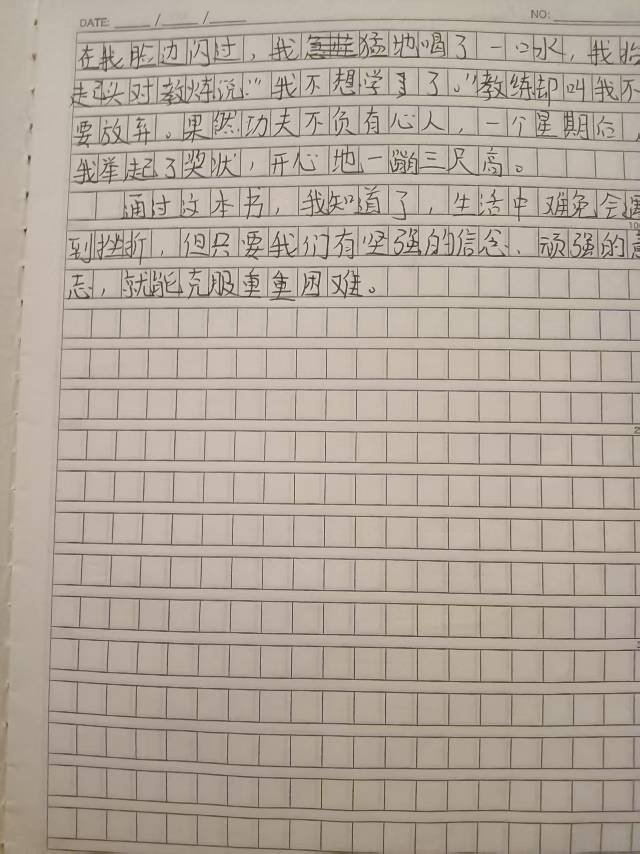 DATE: / /
NO:
在我脸边闪过，我猛地喝了一口水，我抬
起头对教练说："我不想学了。"教练却叫我不
要放弃。果然功夫不负有心人，一个星期后，
我举起了奖状，开心地一蹦三尺高。
通过这本书，我知道了，生活中难免会遇
到挫折，但只要我们有坚强的信念、顽强的意
志，就能克服重重困难。